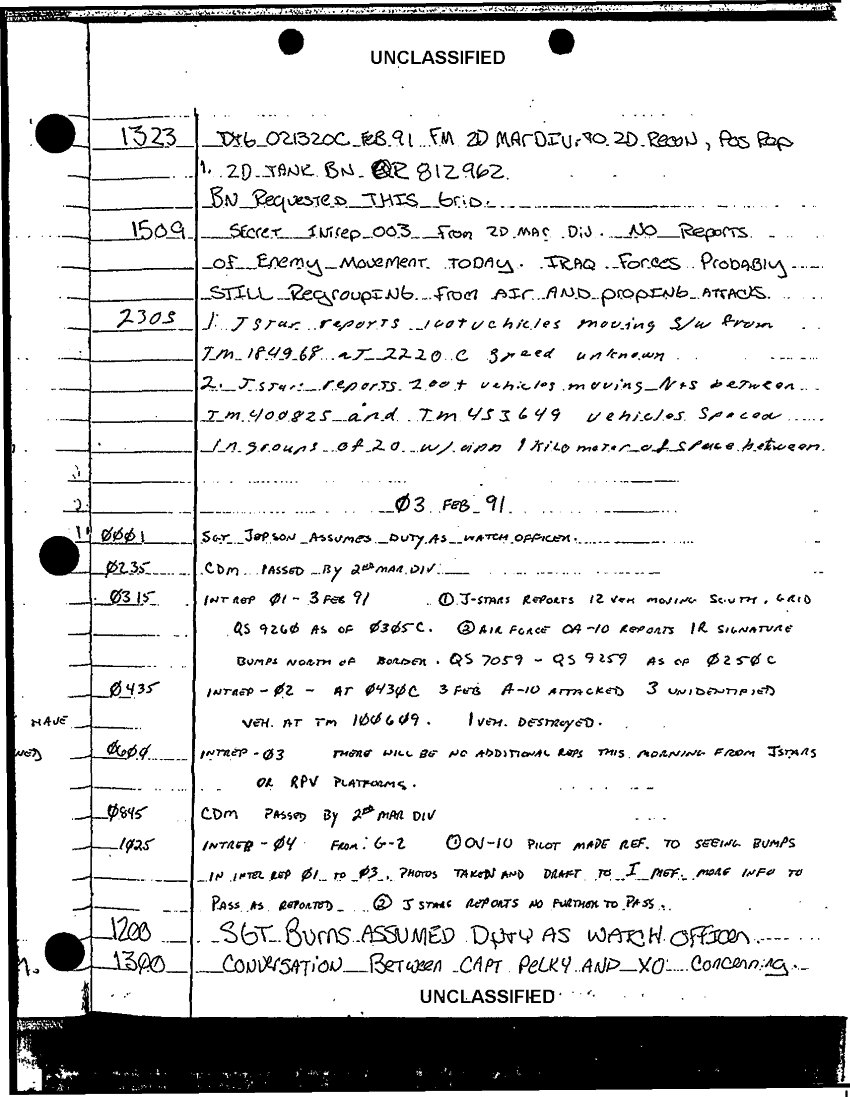 UNCLASSIFIED
1323 021320C FEB 91 FM 2D MARDIV TO 2D RECON, POS REP
1. 2D TANK BN QR 812962.
BN REQUESTED THIS GRID.
1509 SECRET INTREP 003 FROM 2D MAR DIV. NO REPORTS
OF ENEMY MOVEMENT TODAY. IRAQ FORCES PROBABLY
STILL REGROUPING FROM AIR AND PROPING ATTACKS.
2305 1. J Star reports 100+ vehicles moving S/W from
TM 184968 at 2220 C speed unknown
2. J Star reports 200+ vehicles moving N+S between
TM 400825 and TM 453649 vehicles spaced
in groups of 20 w/ app 1 kilometer of space between.
03 FEB 91
0001 SGT JEPSON ASSUMES DUTY AS WATCH OFFICER.
0235 CDM PASSED BY 2nd MAR DIV
0315 INTREP 01 - 3 FEB 91 ① J-STARS REPORTS 12 VEH MOVING SOUTH, GRID
QS 9260 AS OF 0305C. ② AIR FORCE OA-10 REPORTS IR SIGNATURE
BUMPS NORTH OF BORDER. QS 7059 - QS 9259 AS OF 0250C
0435 INTREP - 02 - AT 0430C 3 FEB A-10 ATTACKED 3 UNIDENTIFIED
HAVE VEH. AT TM 100609. 1 VEH. DESTROYED.
0600 INTREP - 03 THERE WILL BE NO ADDITIONAL REPS THIS MORNING FROM JSTARS
OR RPV PLATFORMS.
0845 CDM PASSED BY 2nd MAR DIV
1025 INTREP - 04 FROM: G-2 ① OV-10 PILOT MADE REF. TO SEEING BUMPS
IN INTEL REP 01 TO 03. PHOTOS TAKEN AND DRAFT TO I MEF. MORE INFO TO
PASS AS REPORTED ② J STARS REPORTS NO FURTHER TO PASS.
1200 SGT BURNS ASSUMED DUTY AS WATCH OFFICER
1300 CONVERSATION BETWEEN CAPT PELKY AND XO CONCERNING
UNCLASSIFIED